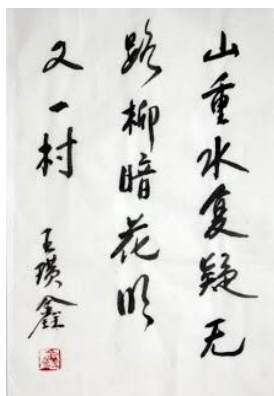 山重水复疑无
路柳暗花明
又一村
王璞鑫